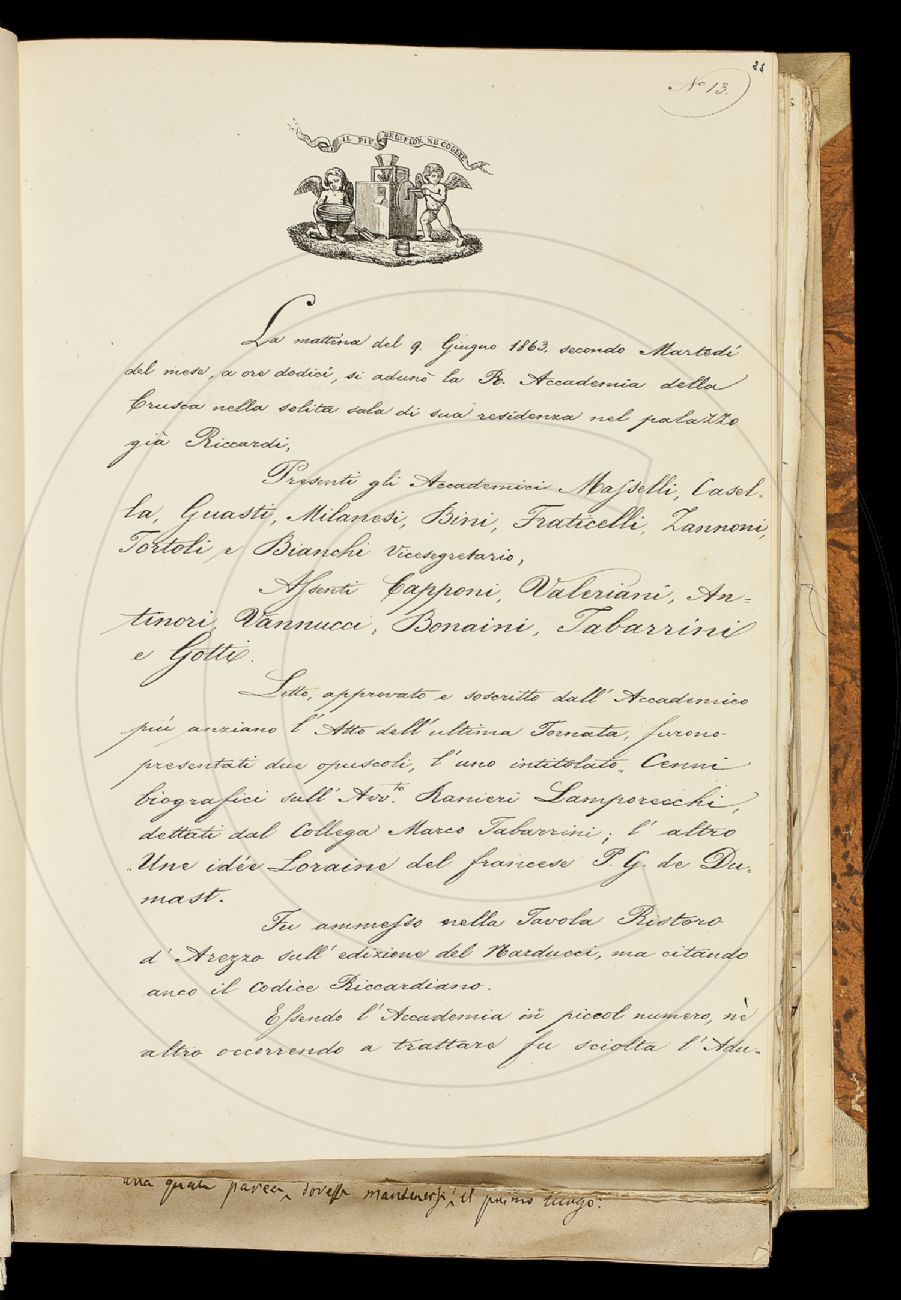 28
N° 13.
IL PIÙ BEL FIOR NE COGLIE
La mattina del 9. Giugno 1863. secondo Martedì
del mese, a ore dodici, si adunò la R. Accademia della
Crusca nella solita sala di sua residenza nel palazzo
già Riccardi,
Presenti gli Accademici Masselli, Casel-
la, Guasti, Milanesi, Bini, Fraticelli, Zannoni,
Tortoli, e Bianchi Vicesegretario,
Assenti Capponi, Valeriani, An-
tinori, Vannucci, Bonaini, Tabarrini
e Gotti.
Letto, approvato e soscritto dall' Accademico
più anziano l' Atto dell' ultima Tornata, furono
presentati due opuscoli, l' uno intitolato „ Cenni
biografici sull' Avv.to Ranieri Lamporecchi,
dettati dal Collega Marco Tabarrini; l' altro
„ Une idée Loraine del francese P. G. de Du-
mast.
Fu ammesso nella Tavola Ristoro
d' Arezzo sull' edizione del Narducci, ma citando
anco il Codice Riccardiano.
Essendo l' Accademia in piccol numero, nè
altro occorrendo a trattare fu sciolta l' Adu-
parea dovesse mantenersi il primo luogo.